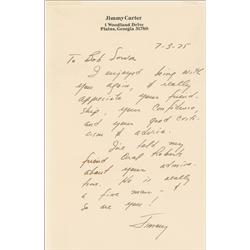 Jimmy Carter
1 Woodland Drive
Plains, Georgia 31780
7-3-75
To Bob
I enjoyed being with
you again, & really
appreciate your friend-
ship, your confidence,
and your good criti-
cism & advice.
I've told my
friend Oral Roberts
about your admira-
tion. He is really
a fine man - &
so are you!
Jimmy